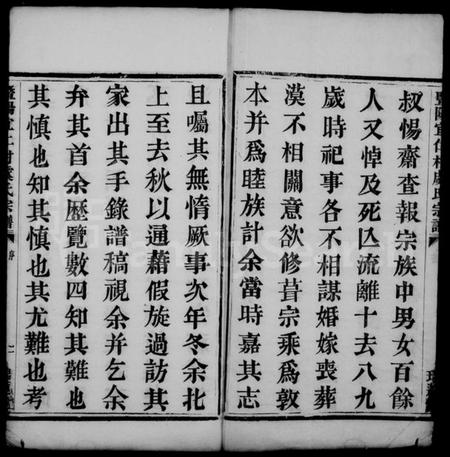 叔惕齋查報宗族中男女百餘
人又悼及死亾流離十去八九
歲時祀事各不相謀婚嫁喪葬
漠不相關意欲修葺宗乘爲敦
本并爲睦族計余當時嘉其志
且囑其無惰厥事次年冬余北
上至去秋以通藉假旋過訪其
家出其手錄譜稿視余并乞余
弁其首余歷覽數四知其難也
其慎也知其慎也其尤難也考